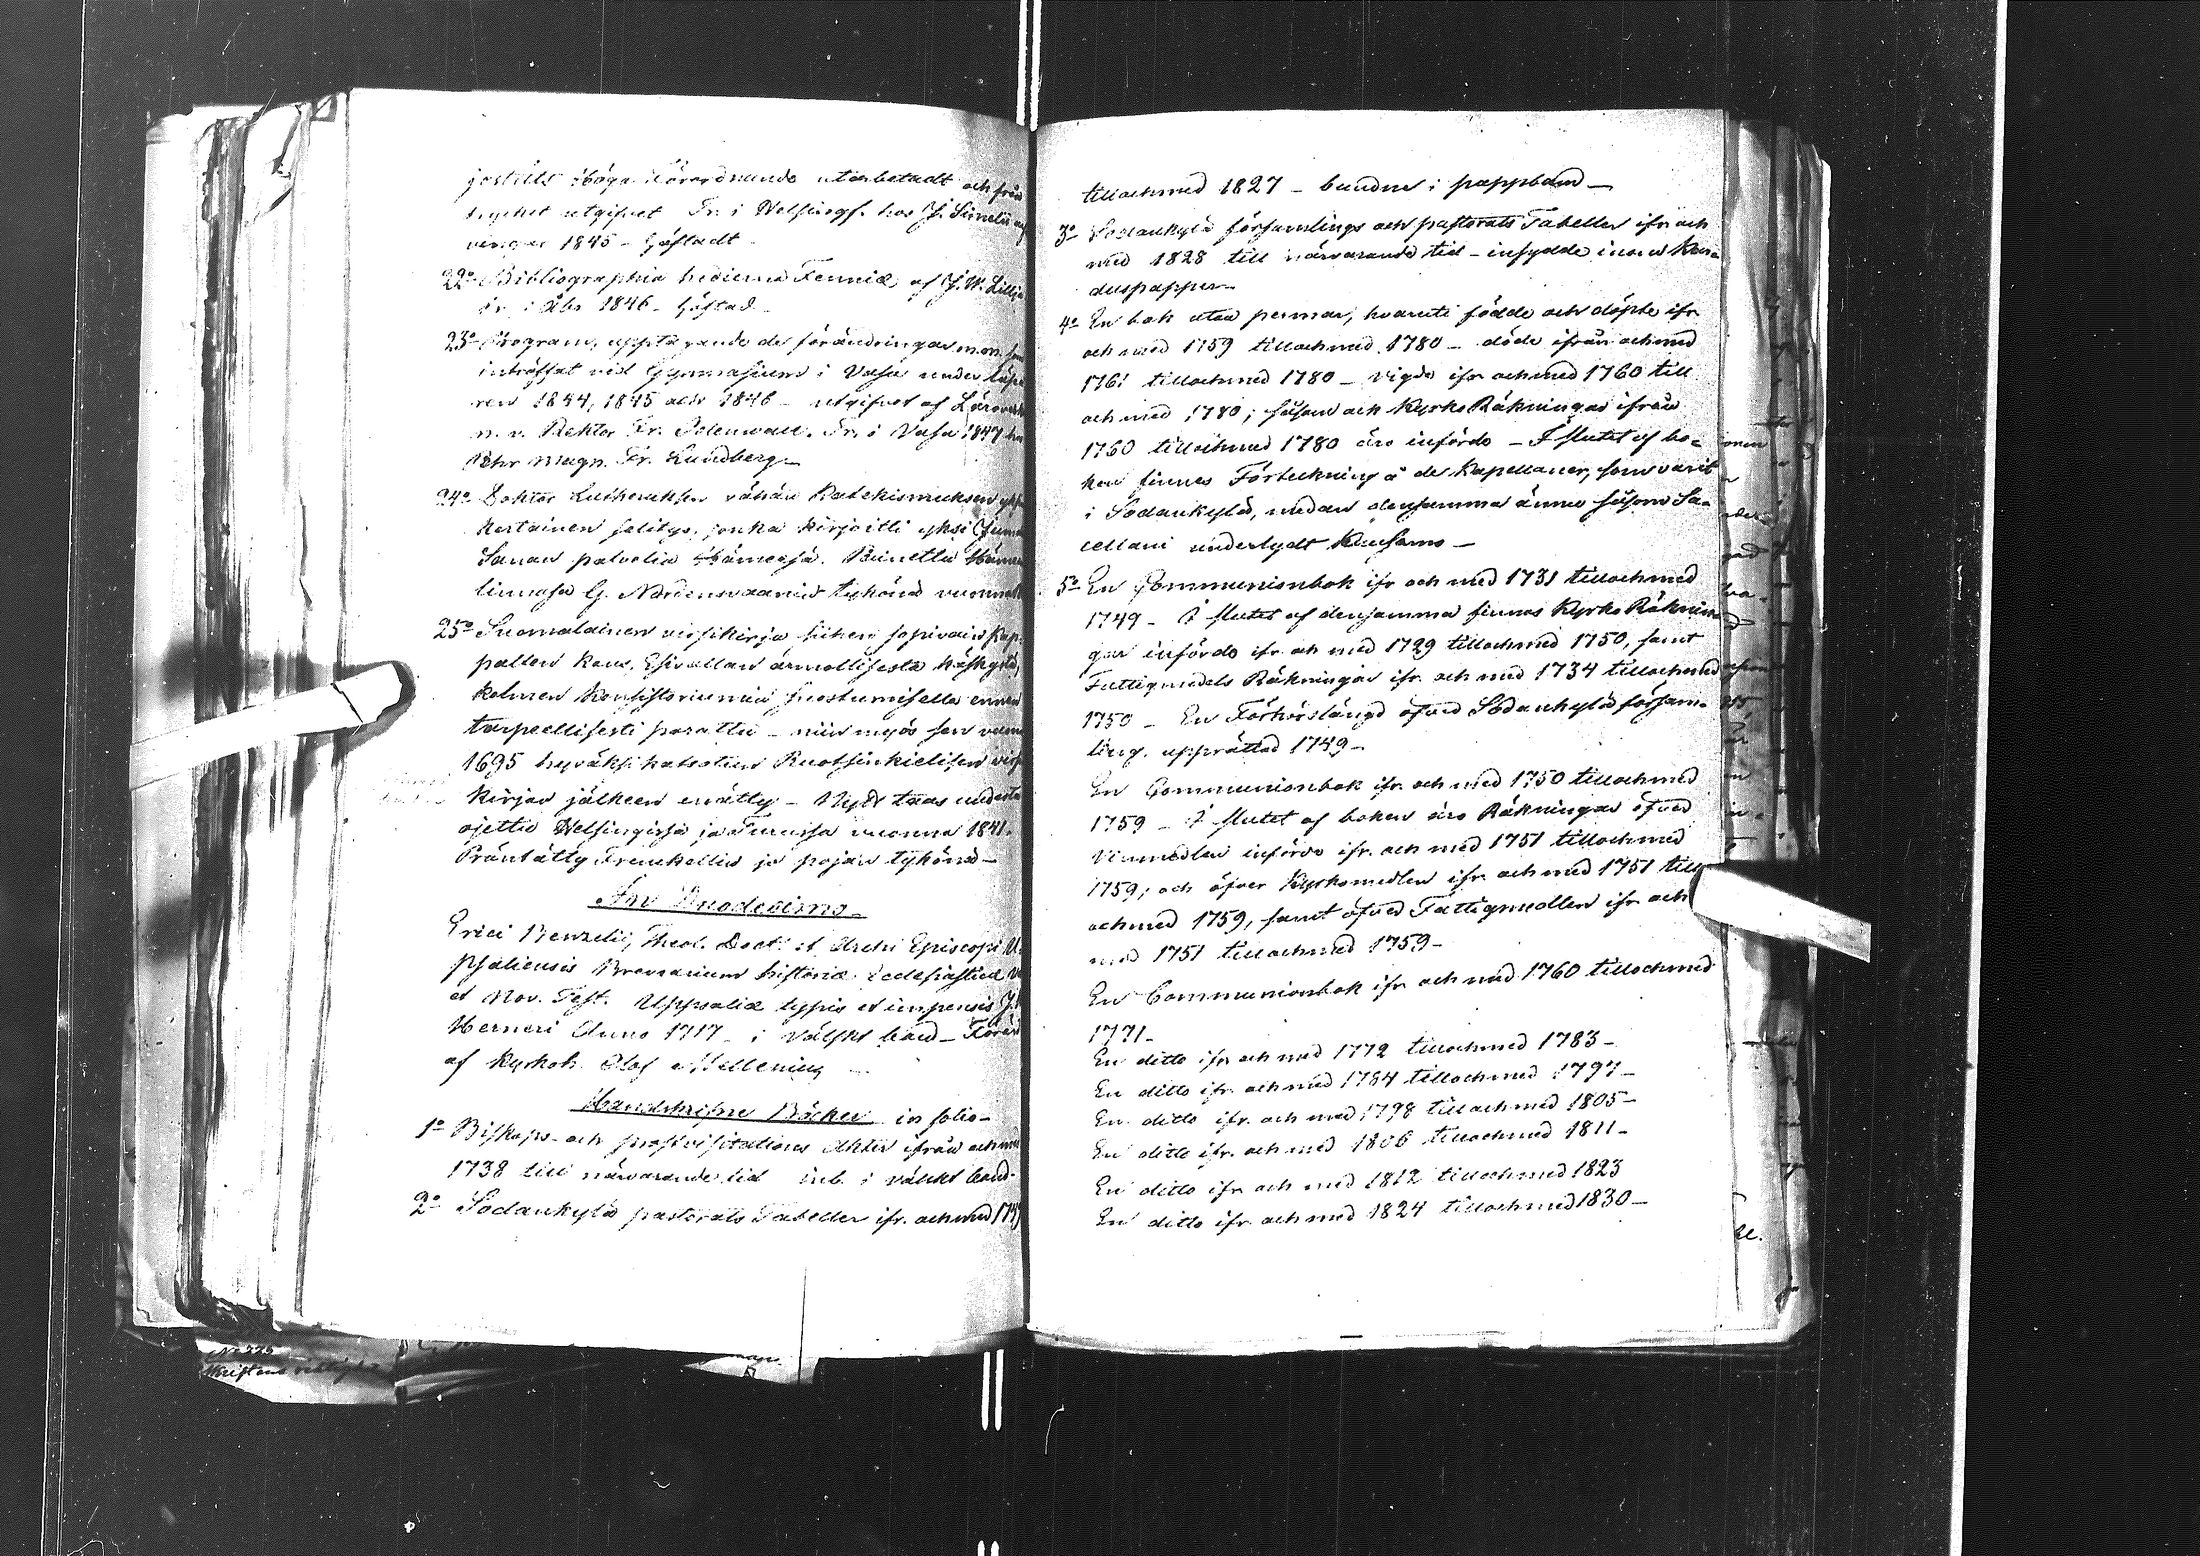 jestäts Höga Förordnande utarbetadt och från
trycket utgifvet Tr. i Helsingf. hos J. Simelii arf
vingar 1845 - häftadt.
22o Bibliographia hodierna Fenniæ, af J. W. Lillja
tr. i Åbo 1846 - häftad -
23o Program, upptagande de förändringar m.m. som
inträffat vid Gymnasium i Vasa under läse
ren 1844, 1845 och 1846 - utgifvet af
n. v. Rektor Fr. Odenwall. Tr. i Vasa 1847 hos
Pehr Magn. Fr. Lundberg -
24o Doktor Lutheruksen vähän Katekismuksen yks
kertainen selitys, jonka kirjoitti yksi
Sanan palvelia Hämeesä. Präntätty Hämeen
linnasa G. tykönä
25o Suomalainen virsikirja siihen sopivain kap
palten kans, Esivallan armollisesta käskystä,
kolmen Konsistoriumin suostumisella ennen
tarpeellisesti parattu - niin myös sen vuonna
1695 hyväksi katsotun Ruotsinkielisen virsi
kirjan jälkeen enätty - Nyt taas uudesta
ojettu Helsingissä ja Turussa vuonna 1841.
Präntätty Frenckellin ja pojan tykönä -
In Duodecimo -
Erici Benzelii, Theol. Doct. et Archi Episcopi U
psaliensis Breviarium historiæ Ecclesiasticæ V.
et Nov. Test. Uppsaliæ typis et impensis J. H.
Werneri Anno 1717 - i välskt band - Förärt
af Kyrkoh. Olof Mellenius -
Handskrifne Böcker in folio -
1o Biskops- och prostvisitations Akter ifrån och med
1738 till närvarande tid inb. i välskt band.
2o Sodankylä pastorats Tabeller ifr. och med
tilloch med 1827 - bundne i pappband -
3o Sodankylä församlings och pastorats Tabeller ifr. och
med 1828 till närvarande tid - insydde inom Kar-
duspapper -
4o En bok utan permar, hvaruti födde och döpte ifr.
och med 1759 till och med 1780 - döde ifrån och med
1761 till och med 1780 - vigde ifr. och med 1760 till
och med 1780; såsom ock Kyrko Räkningar ifrån
1760 till och med 1780 äro införde - I slutet af bo-
ken finnes Förteckning å de Kapellaner, som varit
i Sodankylä, medan densamma ännu såsom Sa-
cellani underlydt Kuusamo -
5o En Communionbok ifr. och med 1731 till och med
1749 - I slutet af densamma finnes Kyrko Räknin
gar införde ifr. och med 1729 till och med 1750, samt
Fattigmedels Räkningar ifr. och med 1734 till och med
1750 - En Förhörslängd öfver Sodankylä försam-
ling. upprättad 1749 -
En Communionbok ifr. och med 1750 till och med
1759 - I slutet af boken äro Räkningar öfver
Vinmedlen införde ifr. och med 1751 till och med
1759; och öfver Kyrkomedlen ifr. och med 1751 till
och med 1759, samt öfver Fattigmedlen ifr. och
med 1751 till och med 1759 -
En Communionbok ifr. och med 1760 till och med
1771 -
En ditto ifr. och med 1772 till och med 1783 -
En ditto ifr. och med 1784 till och med 1797 -
En ditto ifr. och med 1798 till och med 1805 -
En ditto ifr. och med 1806 till och med 1811 -
En ditto ifr. och med 1812 till och med 1823
En ditto ifr. och med 1824 till och med 1830 -